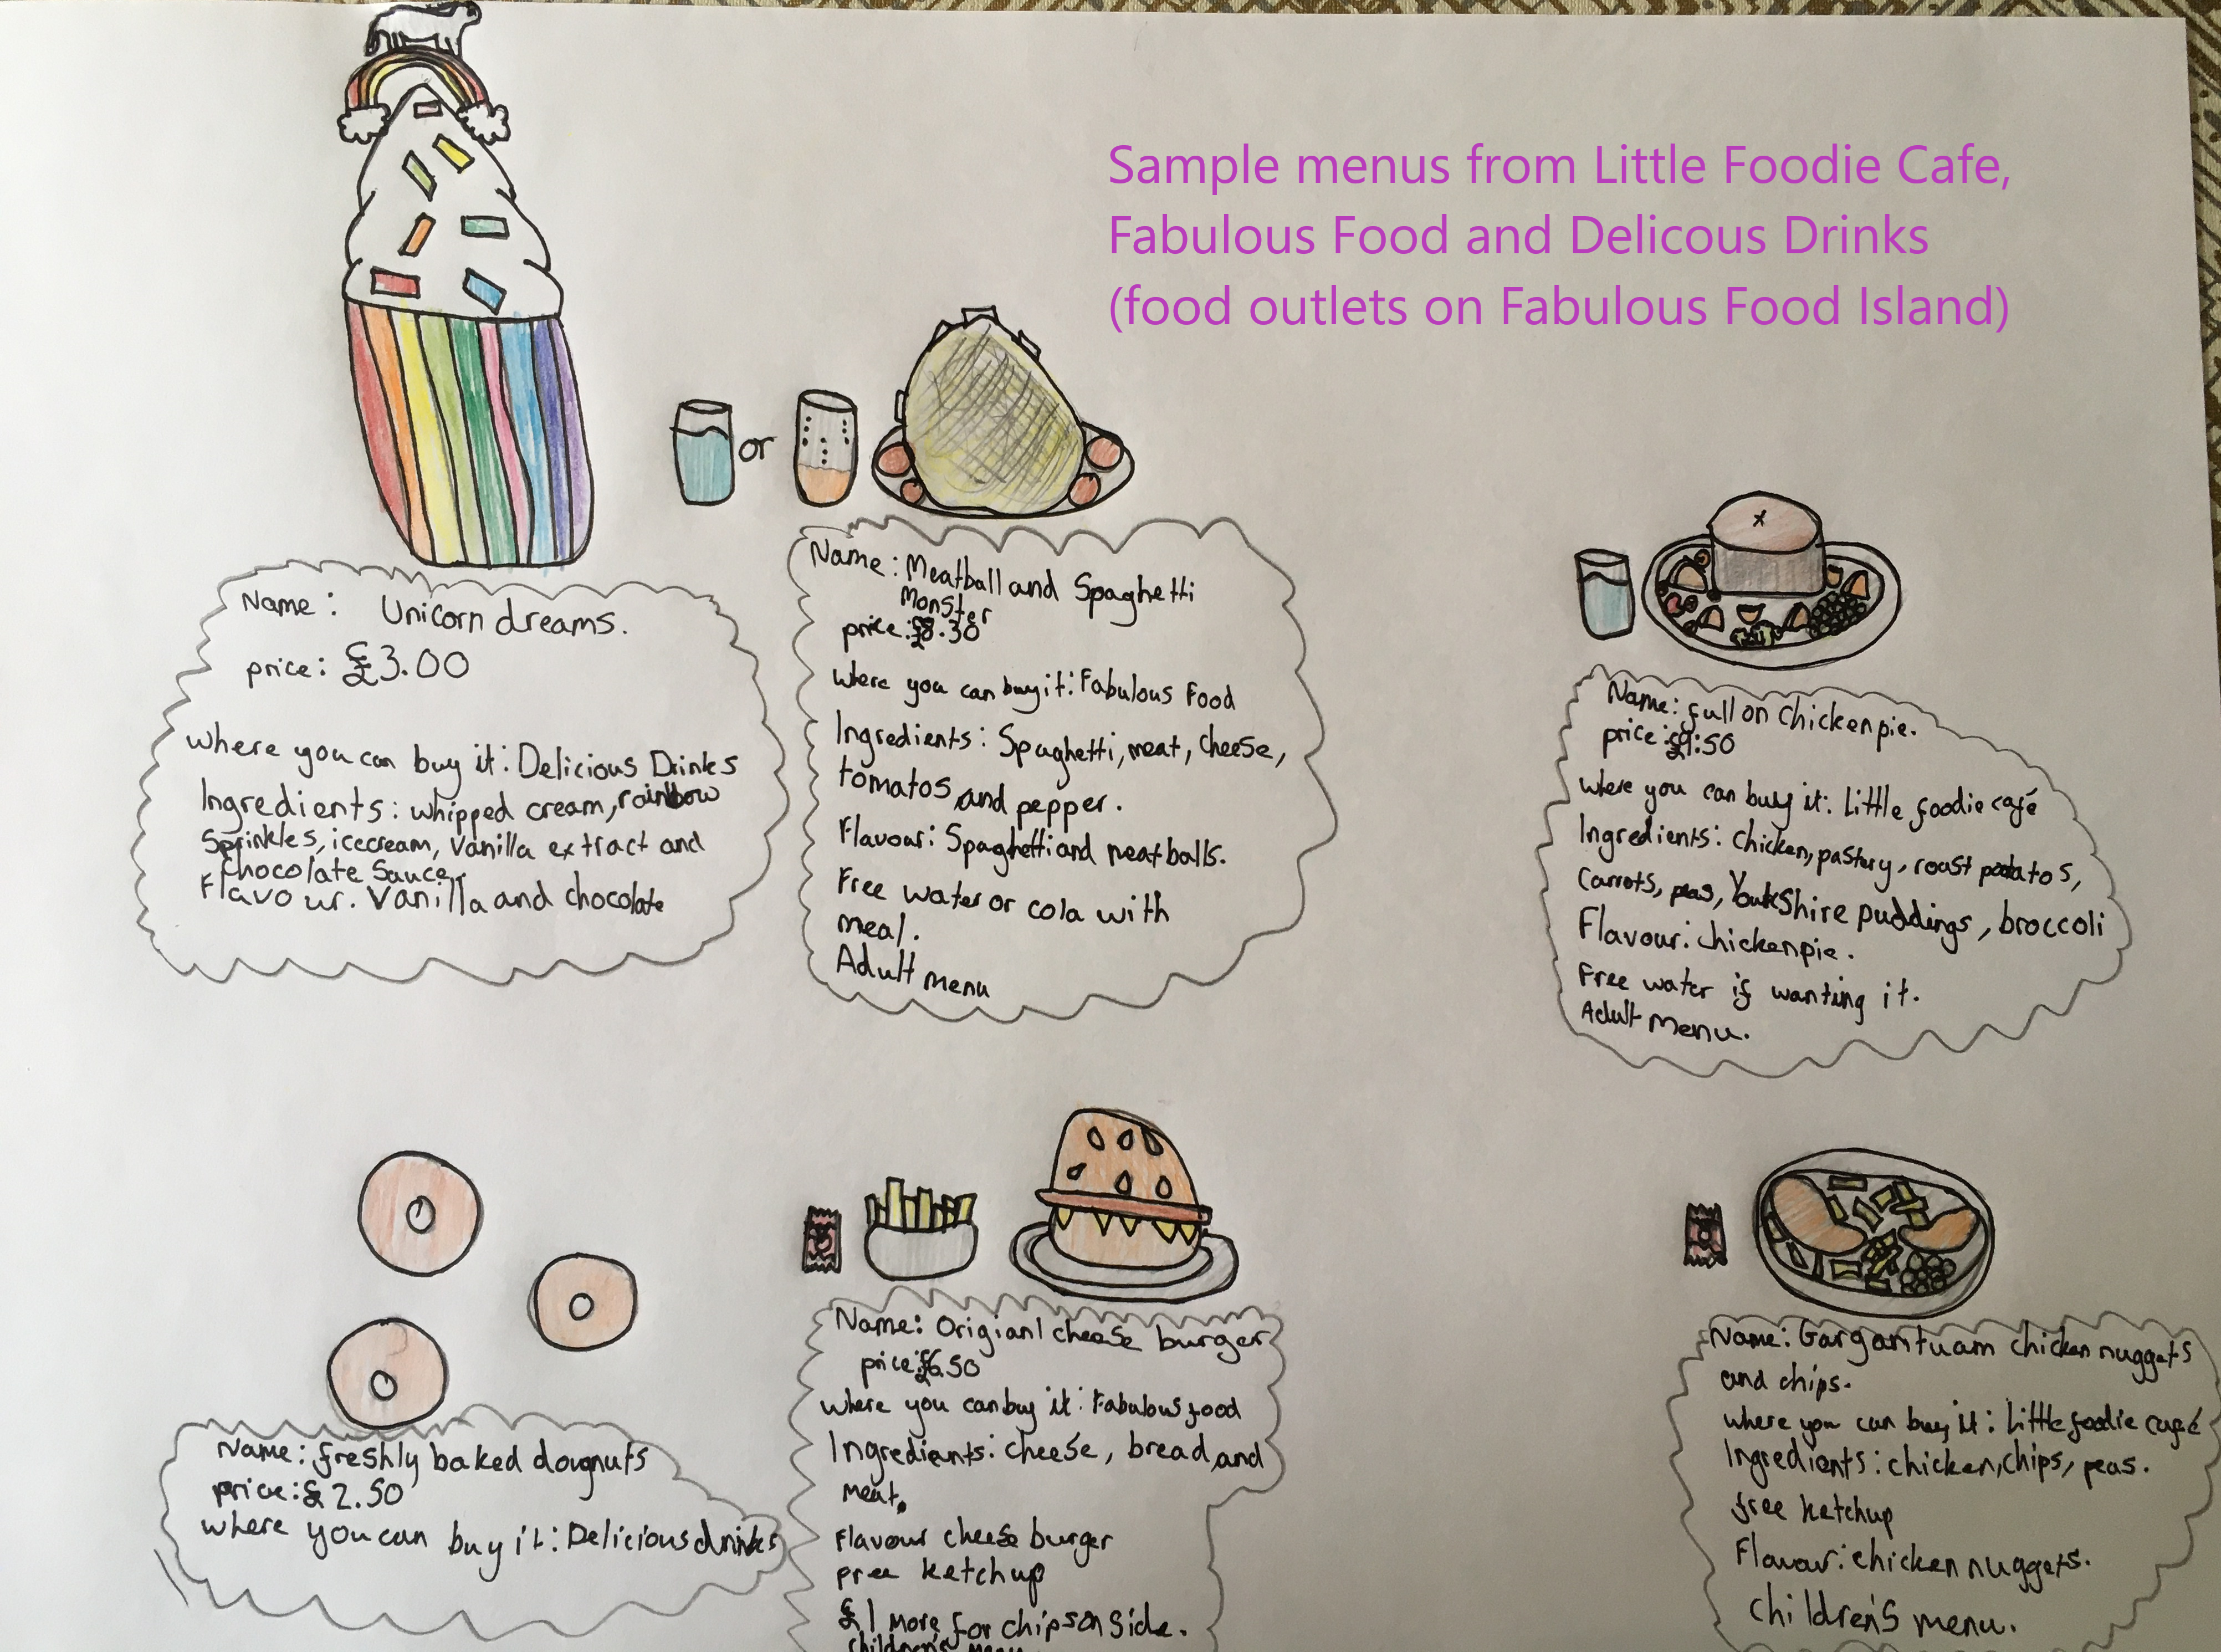 Sample menus from Little Foodie Cafe,
Fabulous Food and Delicous Drinks
(food outlets on Fabulous Food Island)
or
Name: Unicorn dreams.
price: £3.00
where you can buy it: Delicious Drinks
Ingredients: whipped cream, rainbow
Sprinkles, icecream, Vanilla extract and
Chocolate Sauce.
Flavour. Vanilla and chocolate
Name: Meatball and Spaghetti
Monster
price: £8.30
where you can buy it: Fabulous Food
Ingredients: Spaghetti, meat, cheese,
tomatos and pepper.
Flavour: Spaghetti and meatballs.
Free water or cola with
meal.
Adult menu
Name: full on chicken pie.
price: £9:50
where you can buy it: Little foodie café
Ingredients: Chicken, pastery, roast potatos,
Carrots, peas, YorkShire puddings, broccoli
Flavour: chickenpie.
Free water if wanting it.
Adult Menu.
Name: freshly baked dougnuts
price: £2.50
where you can buy it: Delicious drinks
Name: Origianl cheese burger
price: £6.50
where you can buy it: Fabulous food
Ingredients: cheese, bread, and
meat.
Flavour cheese burger
free ketchup
£1 more for chips on side.
children's menu
Name: Gargantuam chicken nuggets
and chips.
where you can buy it: Little foodie café
Ingredients: chicken, chips, peas.
free ketchup
Flavour: chicken nuggets.
children's menu.